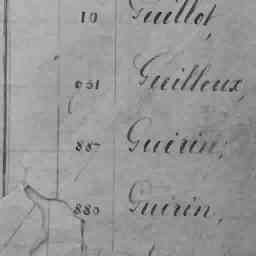 10 Guillot,
031 Guilloux,
887 Guérin,
880 Guirin,